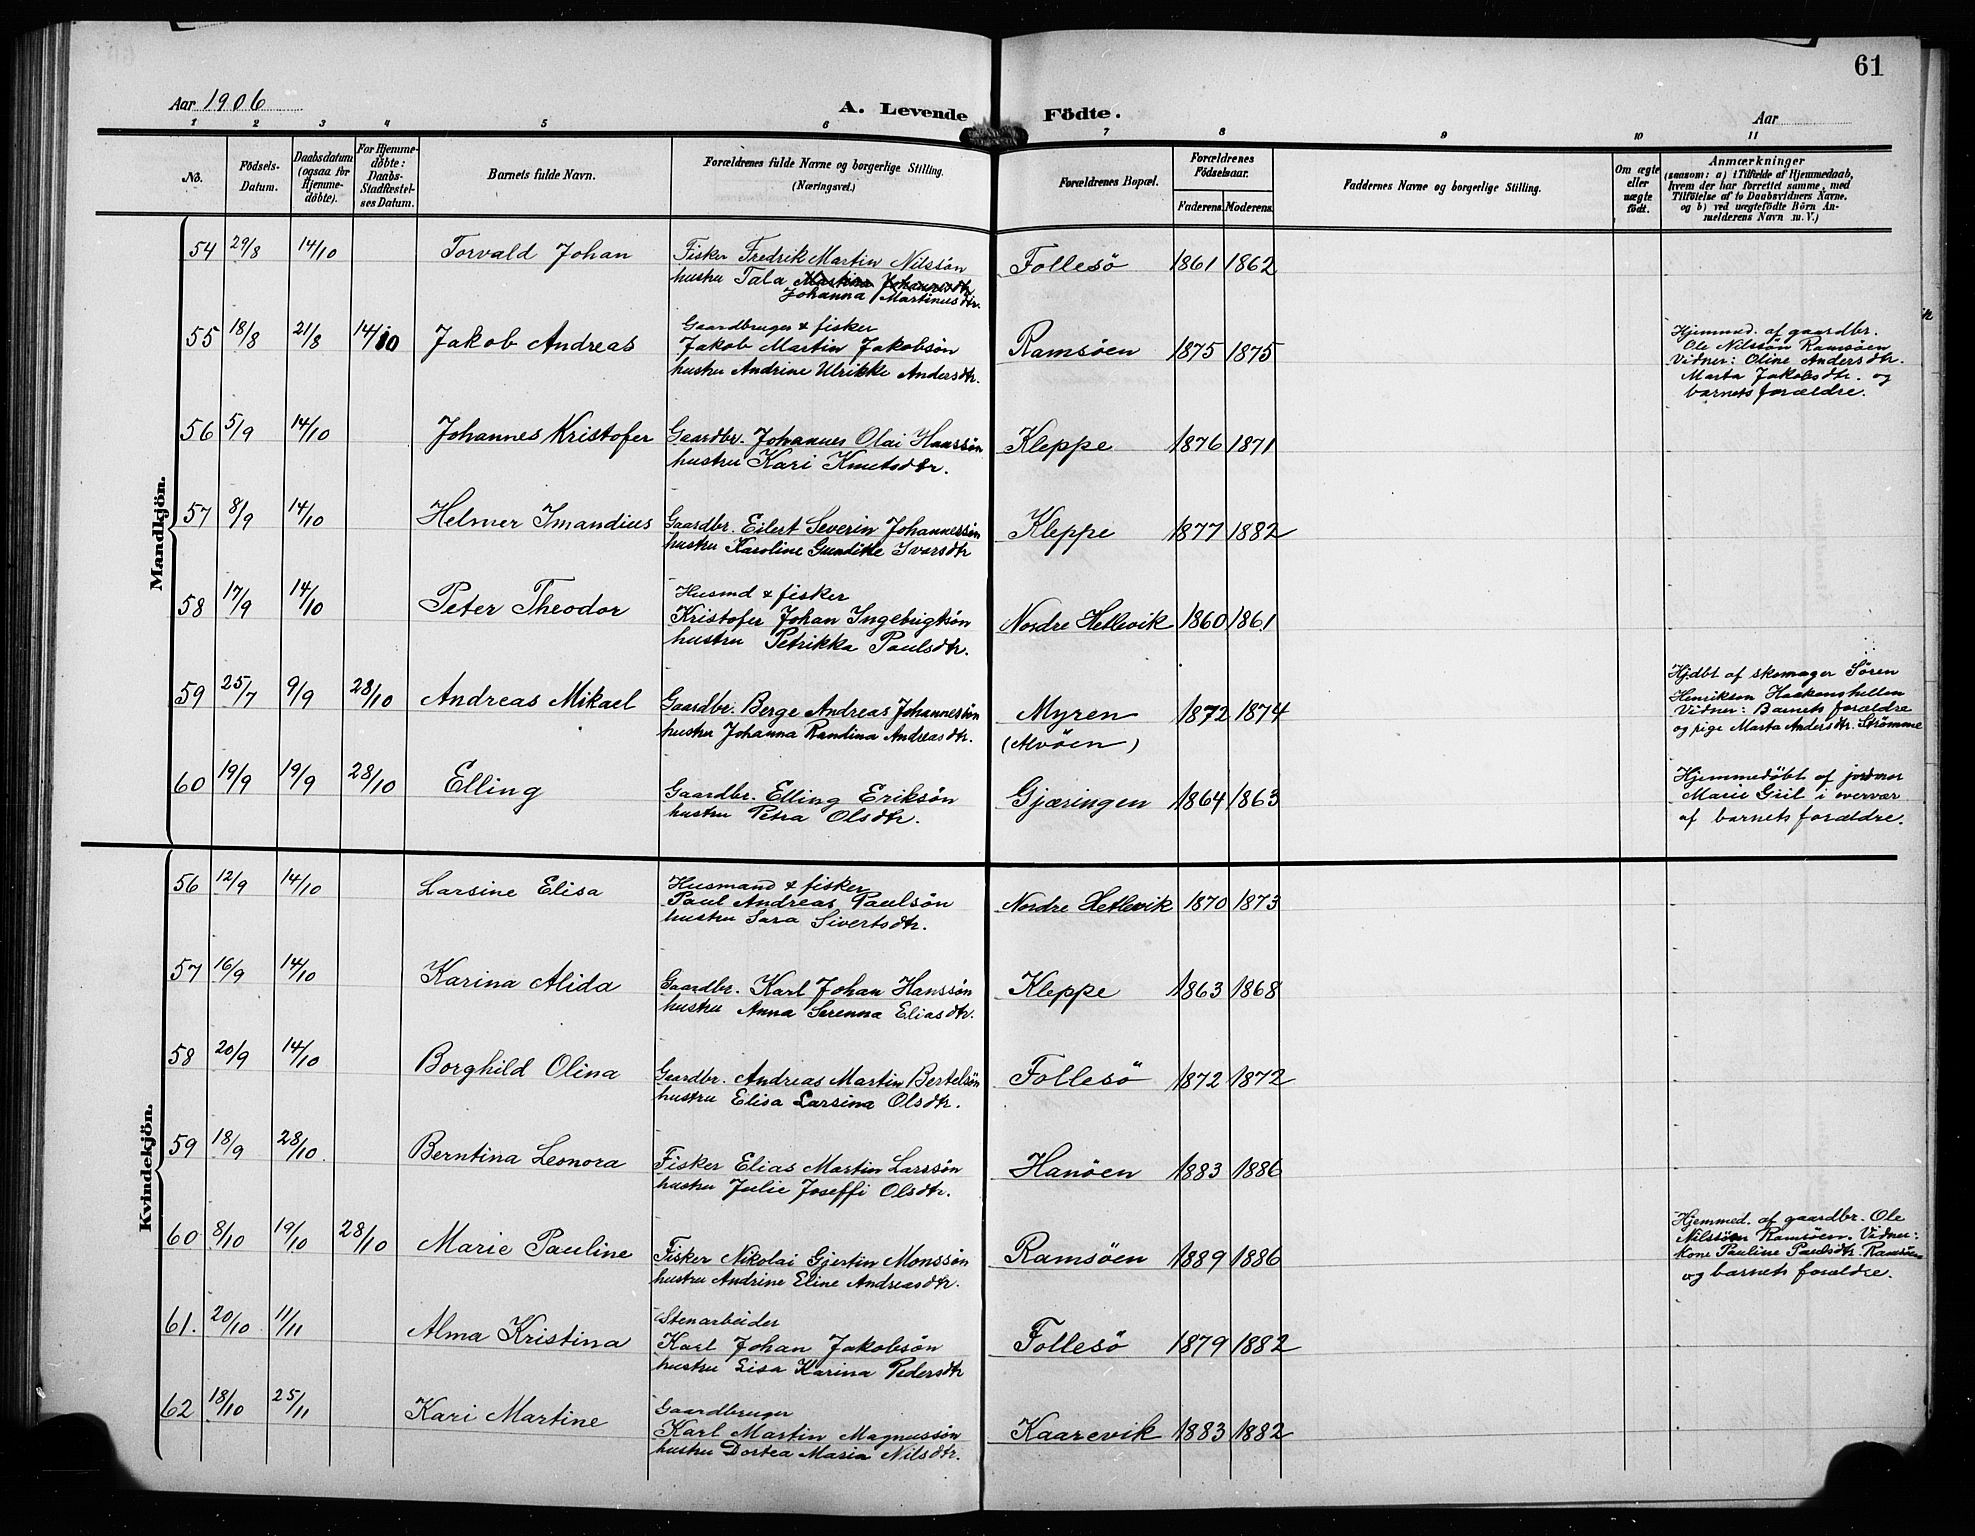 61
Aar 1906 A. Levende Födte. Aar
1 2 3 4 5 6 7 8 9 10 11
No. Födsels-Datum. Daabsdatum (ogsaa for Hjemme-döbte). For Hjemme-döbte: Daabs-Stadfæstel-ses Datum. Barnets fulde Navn. Forældrenes fulde Navne og borgerlige Stilling. (Næringsvei.) Forældrenes Bopæl. Forældrenes Födselsaar. Faderens. Moderens. Faddernes Navne og borgerlige Stilling. Om ægte eller uægte födt. Anmærkninger (saasom: a) i Tilfælde af Hjemmedaab, hvem der har forrettet samme, med Tilföielse af to Daabsvidners Navne. og b) ved uægtefödte Börn An-melderens Navn m. V.)
Mandkjön.
54 29/8 14/10 Torvald Johan Fisker Fredrik Martin Nilssön Follesö 1861 1862
hustru Tala Martina Johannesdtr.
Johanna Martinusdtr.
55 18/8 21/8 14/10 Jakob Andreas Gaardbruger & fisker Ramsöen 1875 1875 Hjemmed. af gaardbr.
Jakob Martin Jakobsön Ole Nilssön Ramsöen
hustru Andrine Ulrikke Andersdtr. Vidner: Oline Andersdtr.
Marta Jakobsdtr. og
barnets forældre.
56 5/9 14/10 Johannes Kristofer Gaardbr. Johannes Olai Hanssön Kleppe 1876 1871
hustru Kari Knutsdtr.
57 8/9 14/10 Helmer Imandius Gaardbr. Eilert Severin Johannessön Kleppe 1877 1882
hustru Karoline Gunditte Ivarsdtr
58 17/9 14/10 Peter Theodor Husmd & fisker
Kristofer Johan Ingebrigtsön Nordre Hetlevik 1860 1861
hustru Petrikka Paulsdtr.
59 25/7 9/9 28/10 Andreas Mikael Gaardbr. Berge Andreas Johannessön Myren 1872 1874 Hjdbt af skomager Sören
hustru Johanna Randina Andreasdtr. (Alvöen) Henrikson Haakonshellen
Vidner: Barnets forældre
og pige Marta Andersdtr. Strömme
60 19/9 19/9 28/10 Elling Gaardbr. Elling Eriksön Gjæringen 1864 1863 Hjemmedöbt af jordmor
hustru Petra Olsdtr. Marie Griil i overvær
af barnets forældre.
Kvindekjön.
56 12/9 14/10 Larsine Elisa Husmand & fisker
Paul Andreas Paulsön Nordre Hetlevik 1870 1873
hustru Sara Sivertsdtr.
57 16/9 14/10 Karina Alida Gaardbr. Karl Johan Hanssön Kleppe 1863 1868
hustru Anna Serenna Eliasdtr.
58 20/9 14/10 Borghild Olina Gaardbr. Andreas Martin Bertelsön Follesö 1872 1872
hustru Elisa Larsina Olsdtr.
59 18/9 28/10 Berntina Leonora Fisker Elias Martin Larssön Hanöen 1883 1886
hustru Julie Joseffi Olsdtr.
60 8/10 19/10 28/10 Marie Pauline Fisker Nikolai Gjertin Monssön Ramsöen 1889 1886 Hjemmed. af gaardbr. Ole
hustru Andrine Eline Andreasdtr. Nilssöen Ramsöen. Vidner:
Kone Pauline Paulsdtr. Ramsöen
og barnets forældre.
61. 20/10 11/11 Alma Kristina Stenarbeider
Karl Johan Jakobsön Follesö 1879 1882
hustru Lisa Karina Pedersdtr
62 18/10 25/11 Kari Martine Gaardbruger
Karl Martin Magnussön Kaarevik 1883 1882
hustru Dortea Maria Nilsdtr.